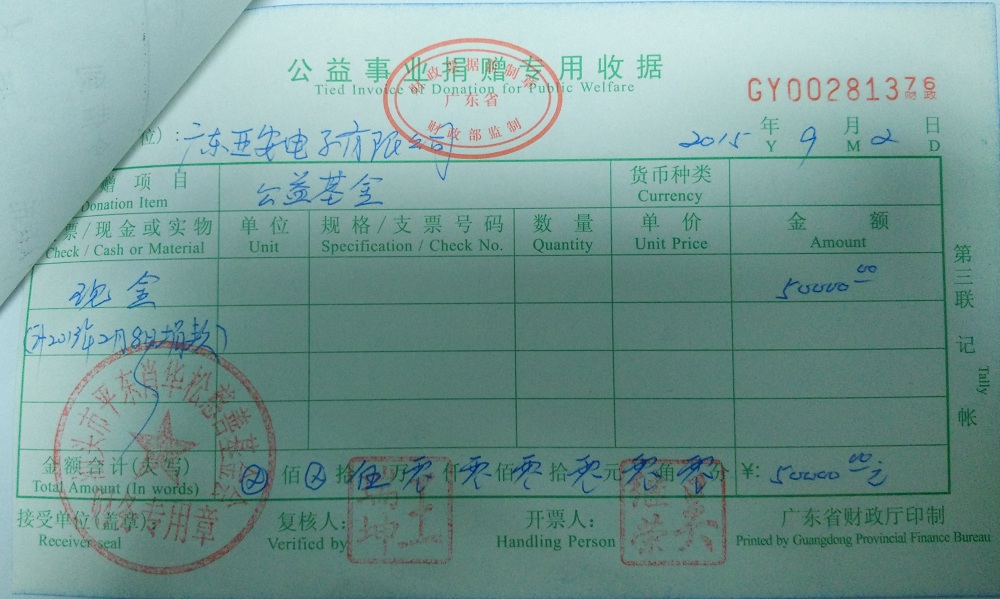 公益事业捐赠专用收据
Tied Invoice of Donation for Public Welfare
广东省
财政部监制
GY00281376
财政
位):广东亚安电子有限公司
2015 年 9 月 2 日
Y M D
赠项目 公益基金 货币种类
Donation Item Currency
票/现金或实物 单位 规格/支票号码 数量 单价 金额
Check / Cash or Material Unit Specification / Check No. Quantity Unit Price Amount
现金 50000.00
2013年2月8日捐款)
金额合计(大写) 佰 拾 伍万 零仟 零佰 零拾 零元 零角 零分 ¥: 50000.00元
Total Amount (In words)
接受单位(盖章): 复核人: 开票人: 广东省财政厅印制
Receiver seal Verified by Handling Person Printed by Guangdong Provincial Finance Bureau
第三联 记帐
Tally
头市平东肖华松慈善基金会
财务专用章